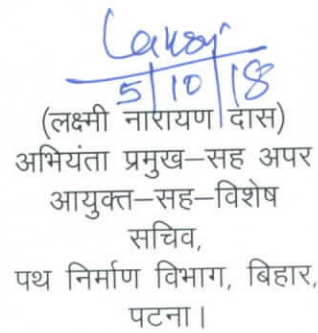 5/10/18
(लक्ष्मी नारायण दास)
अभियंता प्रमुख–सह अपर
आयुक्त–सह–विशेष
सचिव,
पथ निर्माण विभाग, बिहार,
पटना।